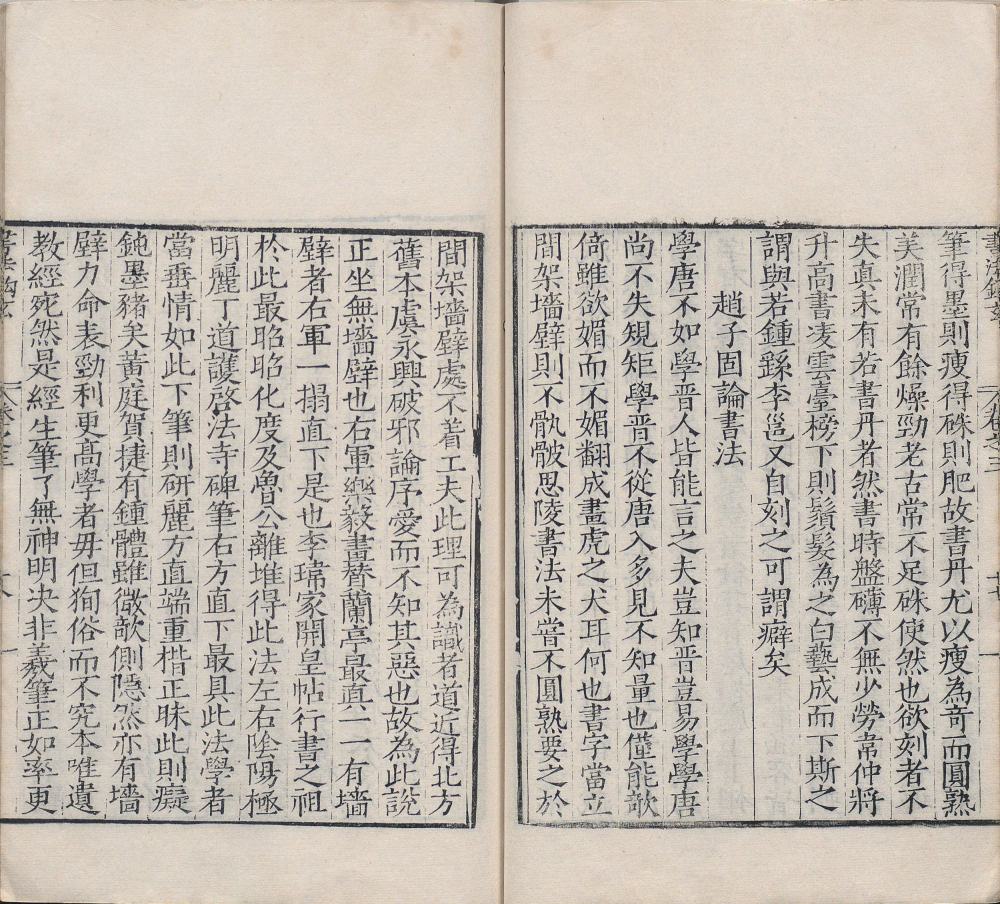 筆得墨則瘦得硃則肥故書丹尤以瘦為奇而圓熟
美潤常有餘燥勁老古常不足硃使然也欲刻者不
失真未有若書丹者然書時盤礴不無少勞韋仲將
升高書凌雲臺榜下則鬚髮為之白藝成而下斯之
謂與若鍾繇李邕又自刻之可謂癖矣
趙子固論書法
學唐不如學晋人皆能言之夫豈知晋豈易學學唐
尚不失規矩學晋不從唐入多見不知量也僅能欹
倚雖欲媚而不媚翻成畫虎之犬耳何也書字當立
間架墻壁則不骫骳思陵書法未嘗不圓熟要之於
間架墻壁處不着工夫此理可為識者道近得北方
舊本虞永興破邪論序愛而不知其惡也故為此說
正坐無墻壁也右軍樂毅書賛蘭亭最真一一有墻
壁者右軍一搨直下是也李瑋家開皇帖行書之祖
於此最昭昭化度及魯公離堆得此法左右陰陽極
明麗丁道護啓法寺碑筆右方直下最具此法學者
當垂情如此下筆則研麗方直端重楷正昧此則癡
鈍墨豬矣黃庭賀捷有鍾體雖微欹側隱然亦有墻
壁力命表勁利更高學者毋但狥俗而不究本唯遺
教經宛然是經生筆了無神明决非羲筆正如率更